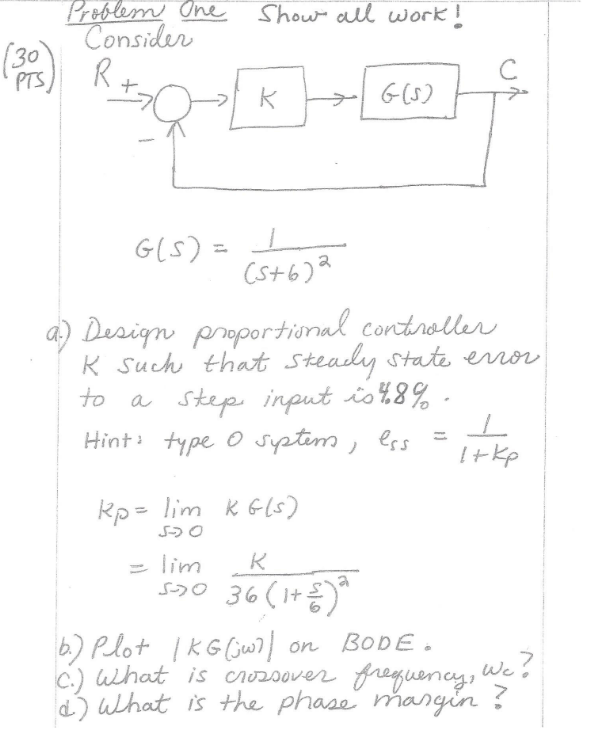 Problem One Show all work!
(30 PTS) Consider
R + - K G(s) C
G(s) = 1/(s+6)²
a.) Design proportional controller
K such that steady state error
to a step input is 4.8%.
Hint: type 0 system, ess = 1/(1+Kp)
Kp = lim s→0 K G(s)
= lim s→0 K/(36(1+s/6)²)
b.) Plot |KG(jω)| on BODE.
c.) What is crossover frequency, ωc?
d) What is the phase margin?